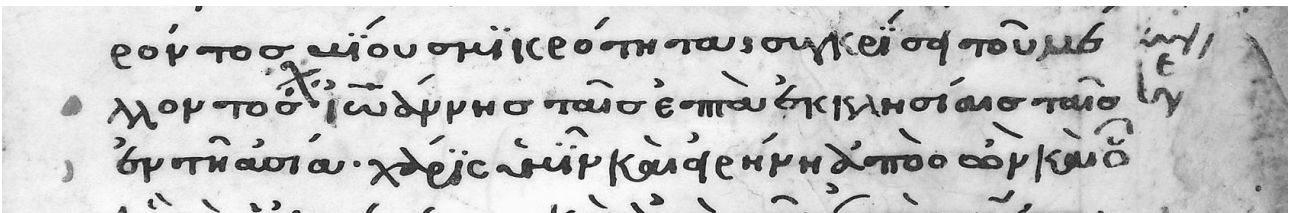 ρόντος βίου σμϊκρότητα, συγκρίσει τοῦ μέ
λλοντος Ἰωάννης ταῖς ἑπτὰ ἐκκλησίαις ταῖς
ἐν τῆ ἀσία· χάρϊς ὑμῖν καὶ εἰρήνη ἀπὸ ὁ ὢν καὶ ὁ